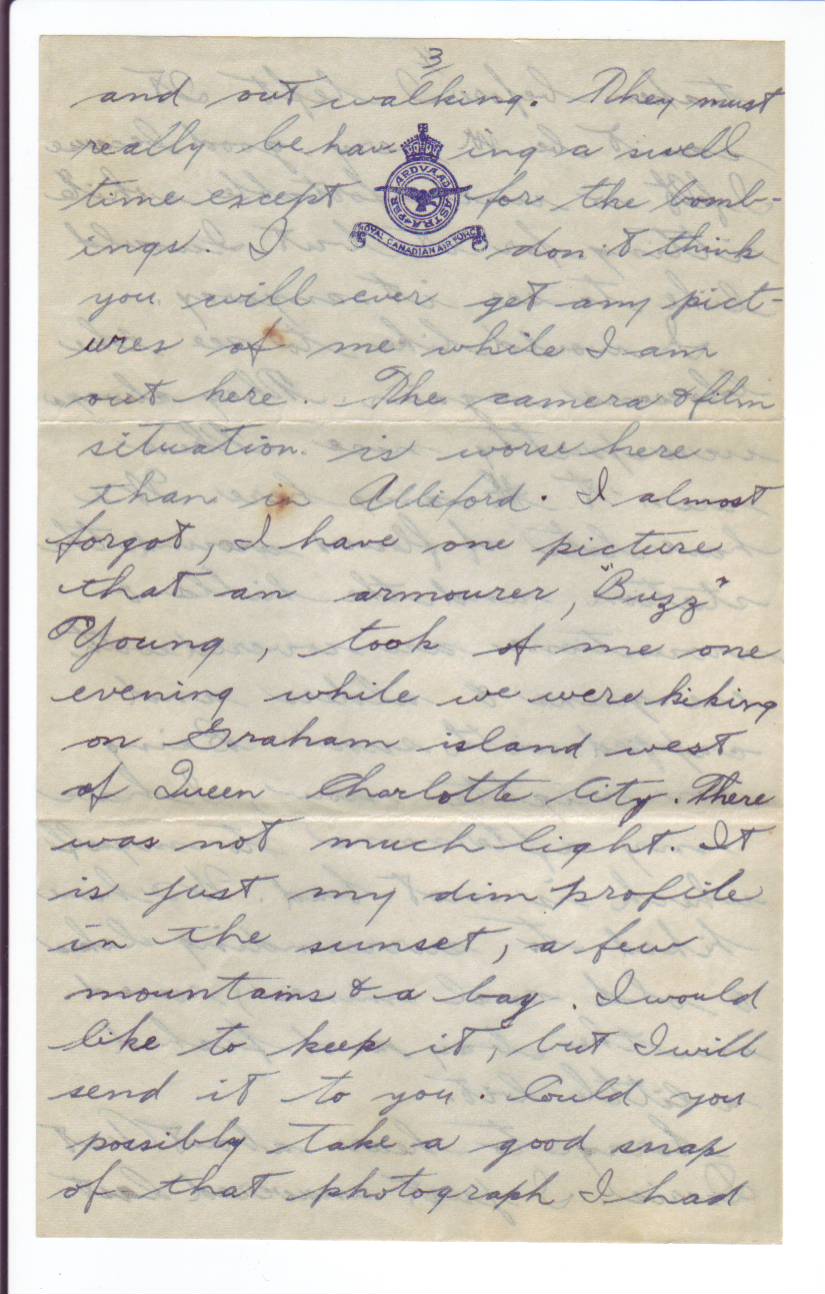 3
and out walking. They must
really be having a swell
time except for the bomb-
ings. I don't think
you will ever get any pict-
ures of me while I am
out here. The camera & film
situation is worse here
than in Alliford. I almost
forgot, I have one picture
that an armourer, "Buzz"
Young, took of me one
evening while we were hiking
on Graham island west
of Queen Charlotte City. There
was not much light. It
is just my dim profile
in the sunset, a few
mountains & a bay. I would
like to keep it, but I will
send it to you. Could you
possibly take a good snap
of that photograph I had
PER ARDVA AD ASTRA
ROYAL CANADIAN AIR FORCE